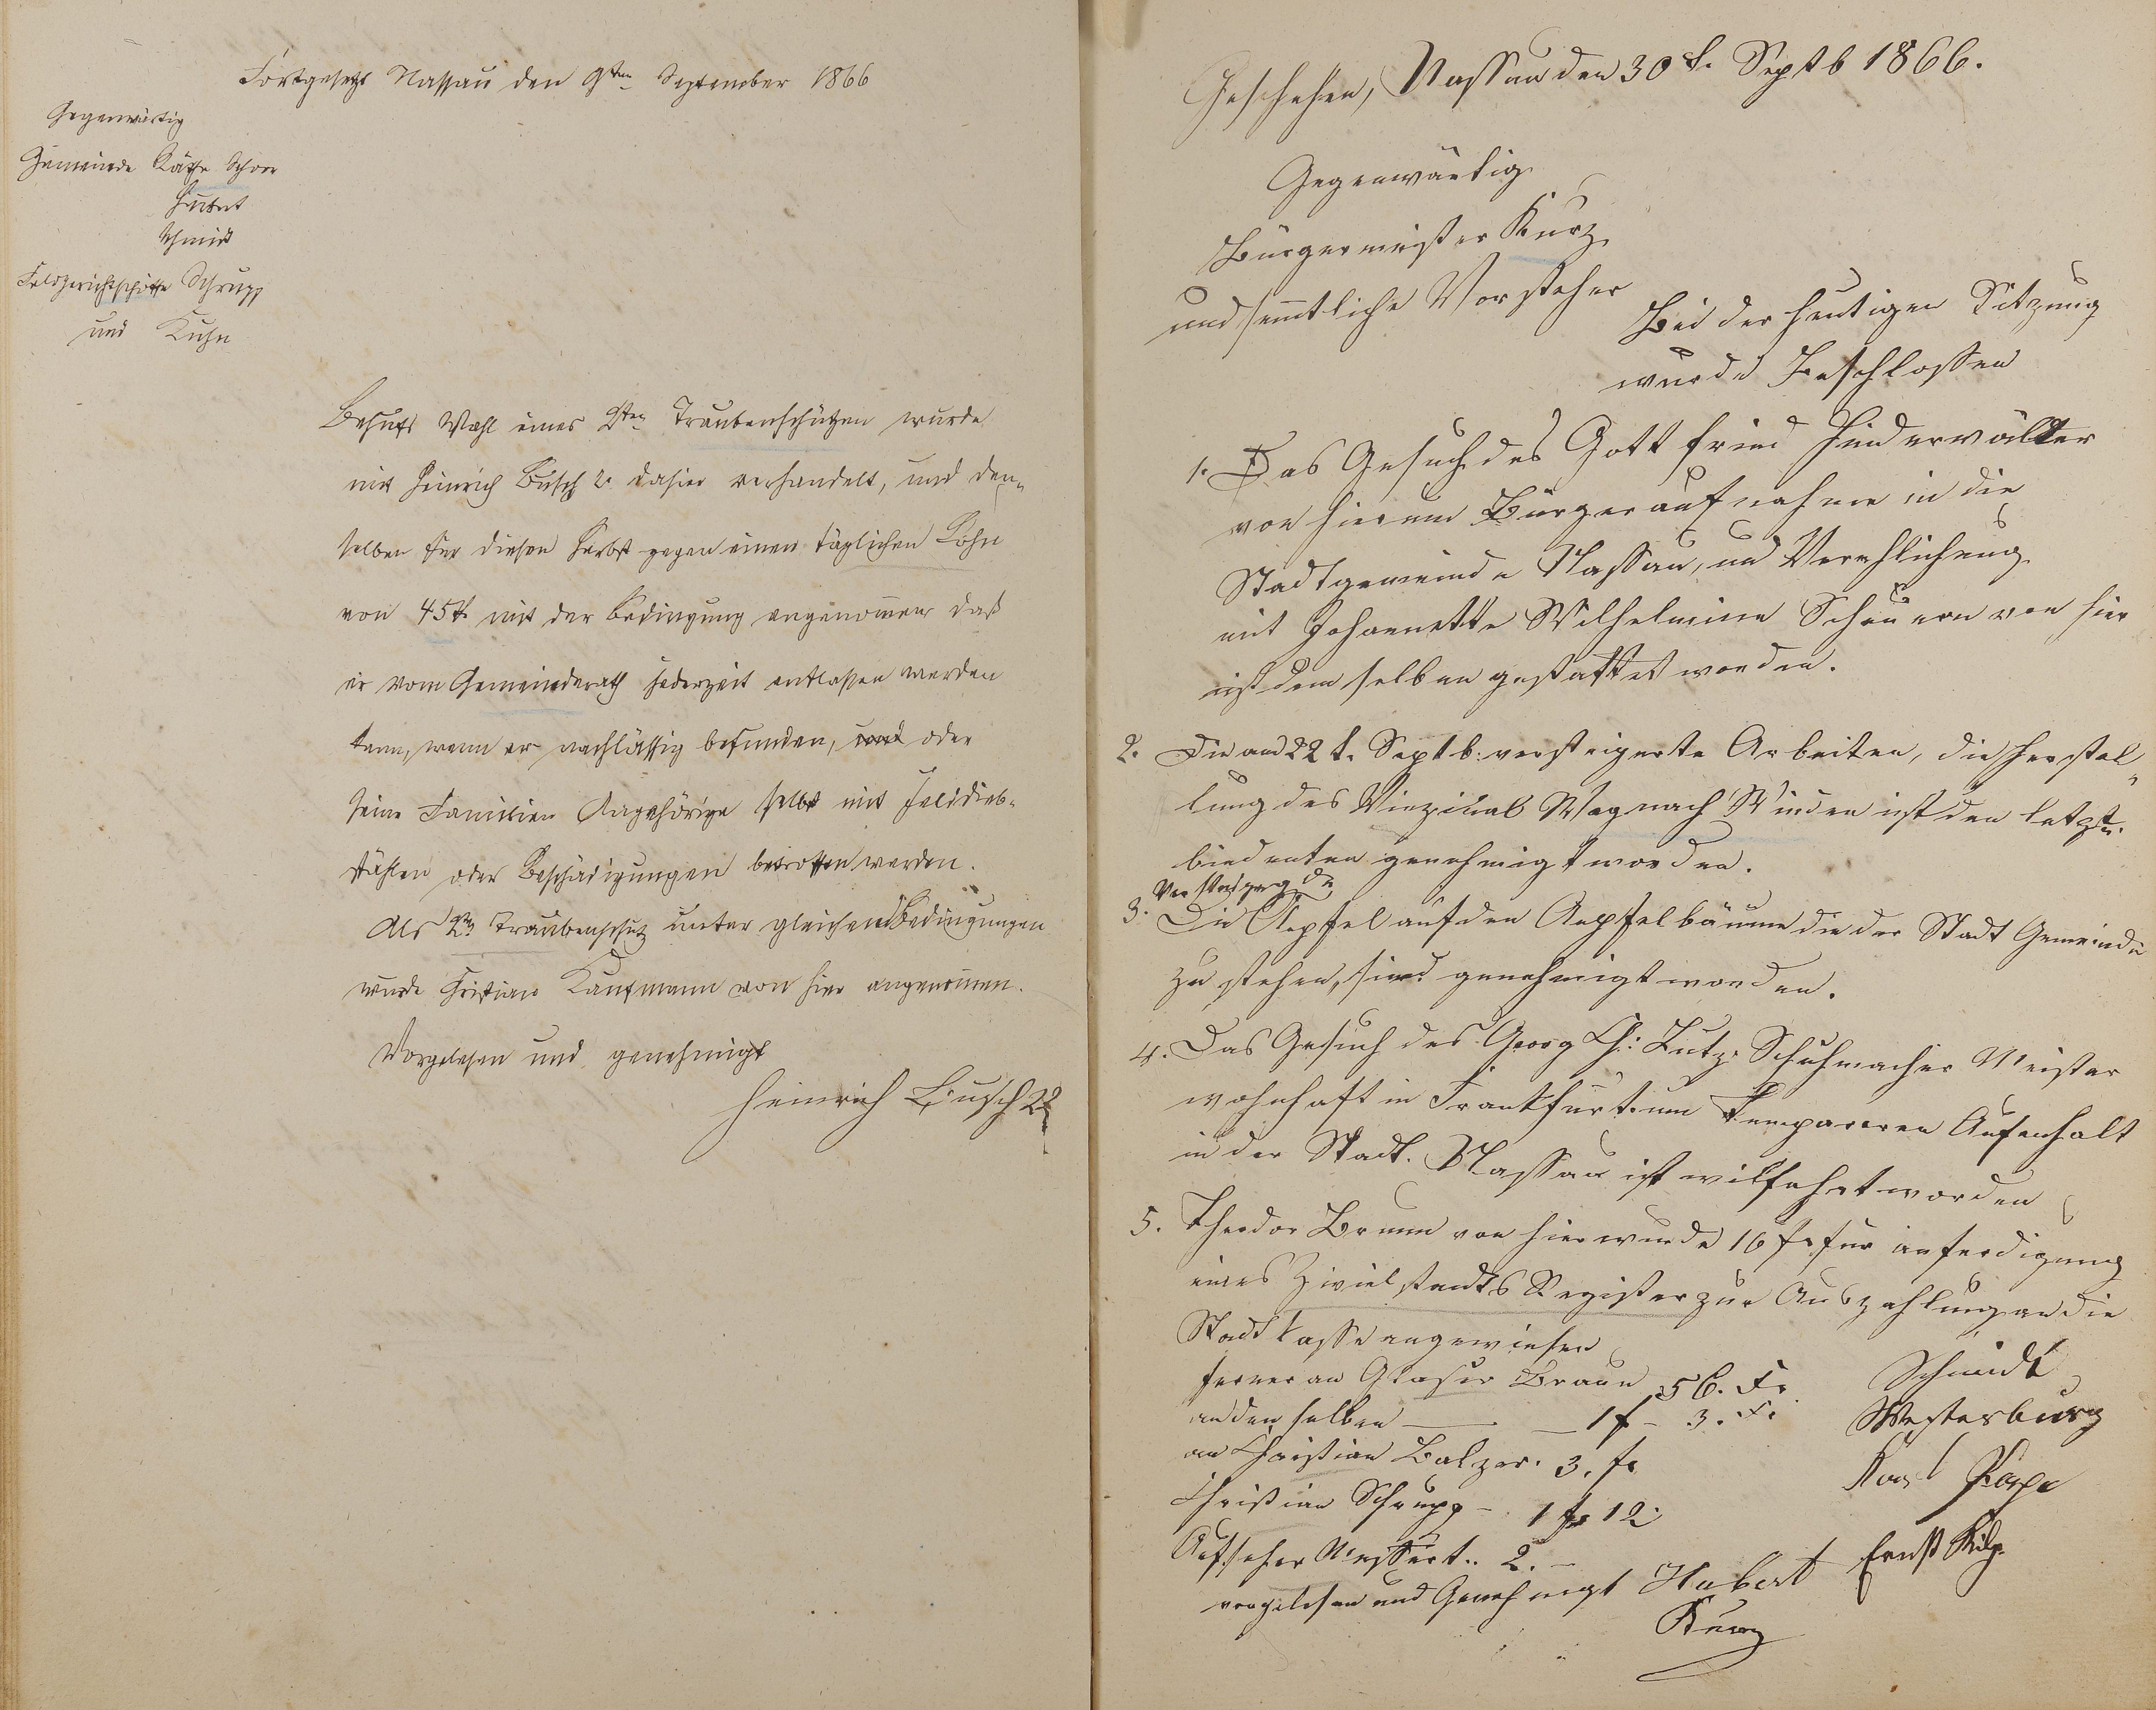 Fortgesetzt Nassau den 9ten September 1866
Gegenwärtig
Gemeinde Räthe Schorn
Hubert
Schmidt
Feldgerichtschöffe Schrupp
und Kuhn
Behufs Wahl eines 2ten Traubenschützen wurde
mit Heinrich Busch 2r dahier verhandelt, und den-
selben für diesen Herbst gegen einen täglichen Lohn
von 45 mit der Bedingung angenommen daß
er vom Gemeinderath jederzeit entlassen werden
kann, wenn er nachlässig befunden, und oder
seine Familien Angehörige selbst mit Felddieb-
stählen oder Beschädigungen betroffen werden.
Als 2ter Traubenschütz unter gleichen Bedingungen
wurde Christian Kaufmann von hier angenommen.
Vorgelesen und genehmigt
Heinrich Busch 2r
Geschehen, Nassau den 30t. Septb 1866.
Gegenwärtig
Bürgermeister Kurz
und sämtliche Vorsteher
Bei der heutigen Sitzung
wurde Beschlossen
1. Das Gesuch des Gottfried Hinderwälter
von hier um Bürgeraufnahme in die
Stadtgemeinde Nassau, und Verehlichung
mit Johannette Wilhelmine Scheuern von hier
ist demselben gestattet worden.
2. Die am 22t. Septb. versteigerte Arbeiten, die Herstel-
lung des Vizinal Weg nach Winden ist den letzt-
bietenten genehmigt worden.
Versteigerg der
3. Die Aepfel auf den Aepfelbäume die der Stadt Gemeinde
zu stehen, sind genehmigt worden.
4. Das Gesuch des Georg Ch: Lutz. Schuhmacher Meister
wohnhaft in Frankfurt. um Temporeren Aufenhalt
in der Stadt. Nassau ist wilfahrt worden
5. Theodor Brum von hier wurde 16 f. für anferdigung
eines Zivielstandts Register zur Auszahlung an die
Stadtkasse angewiesen
ferner an Glaser Braun 56. Fr
an den selben — 1 f - 3. Fr
an Christian Balzer. 3. fr
Christian Schrupp - 1 fr 12
Aufseher Messert.. 2. -
vorgelesen und Genehmigt
Schmidt
Westerburg
Karl Pape
Ernst Kilp.
Hubert
Kurz